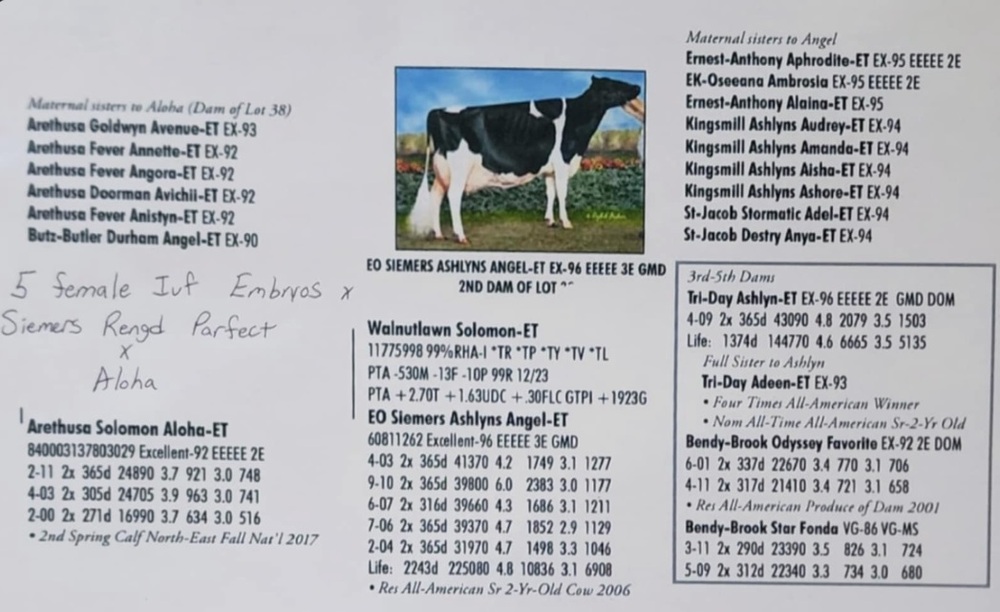 Maternal sisters to Aloha (Dam of Lot 38)
Arethusa Goldwyn Avenue-ET EX-93
Arethusa Fever Annette-ET EX-92
Arethusa Fever Angora-ET EX-92
Arethusa Doorman Avichii-ET EX-92
Arethusa Fever Anistyn-ET EX-92
Butz-Butler Durham Angel-ET EX-90
5 female Ivf Embryos x
Siemers Rengd Parfect
x
Aloha
Arethusa Solomon Aloha-ET
840003137803029 Excellent-92 EEEEE 2E
2-11 2x 365d 24890 3.7 921 3.0 748
4-03 2x 305d 24705 3.9 963 3.0 741
2-00 2x 271d 16990 3.7 634 3.0 516
• 2nd Spring Calf North-East Fall Nat'l 2017
EO SIEMERS ASHLYNS ANGEL-ET EX-96 EEEEE 3E GMD
2ND DAM OF LOT
Walnutlawn Solomon-ET
11775998 99%RHA-I *TR *TP *TY *TV *TL
PTA -530M -13F -10P 99R 12/23
PTA +2.70T +1.63UDC +.30FLC GTPI +1923G
EO Siemers Ashlyns Angel-ET
60811262 Excellent-96 EEEEE 3E GMD
4-03 2x 365d 41370 4.2 1749 3.1 1277
9-10 2x 365d 39800 6.0 2383 3.0 1177
6-07 2x 316d 39660 4.3 1686 3.1 1211
7-06 2x 365d 39370 4.7 1852 2.9 1129
2-04 2x 365d 31970 4.7 1498 3.3 1046
Life: 2243d 225080 4.8 10836 3.1 6908
• Res All-American Sr 2-Yr-Old Cow 2006
Maternal sisters to Angel
Ernest-Anthony Aphrodite-ET EX-95 EEEEE 2E
EK-Oseeana Ambrosia EX-95 EEEEE 2E
Ernest-Anthony Alaina-ET EX-95
Kingsmill Ashlyns Audrey-ET EX-94
Kingsmill Ashlyns Amanda-ET EX-94
Kingsmill Ashlyns Aisha-ET EX-94
Kingsmill Ashlyns Ashore-ET EX-94
St-Jacob Stormatic Adel-ET EX-94
St-Jacob Destry Anya-ET EX-94
3rd-5th Dams
Tri-Day Ashlyn-ET EX-96 EEEEE 2E GMD DOM
4-09 2x 365d 43090 4.8 2079 3.5 1503
Life: 1374d 144770 4.6 6665 3.5 5135
Full Sister to Ashlyn
Tri-Day Adeen-ET EX-93
• Four Times All-American Winner
• Nom All-Time All-American Sr-2-Yr Old
Bendy-Brook Odyssey Favorite EX-92 2E DOM
6-01 2x 337d 22670 3.4 770 3.1 706
4-11 2x 317d 21410 3.4 721 3.1 658
• Res All-American Produce of Dam 2001
Bendy-Brook Star Fonda VG-86 VG-MS
3-11 2x 290d 23390 3.5 826 3.1 724
5-09 2x 312d 22340 3.3 734 3.0 680